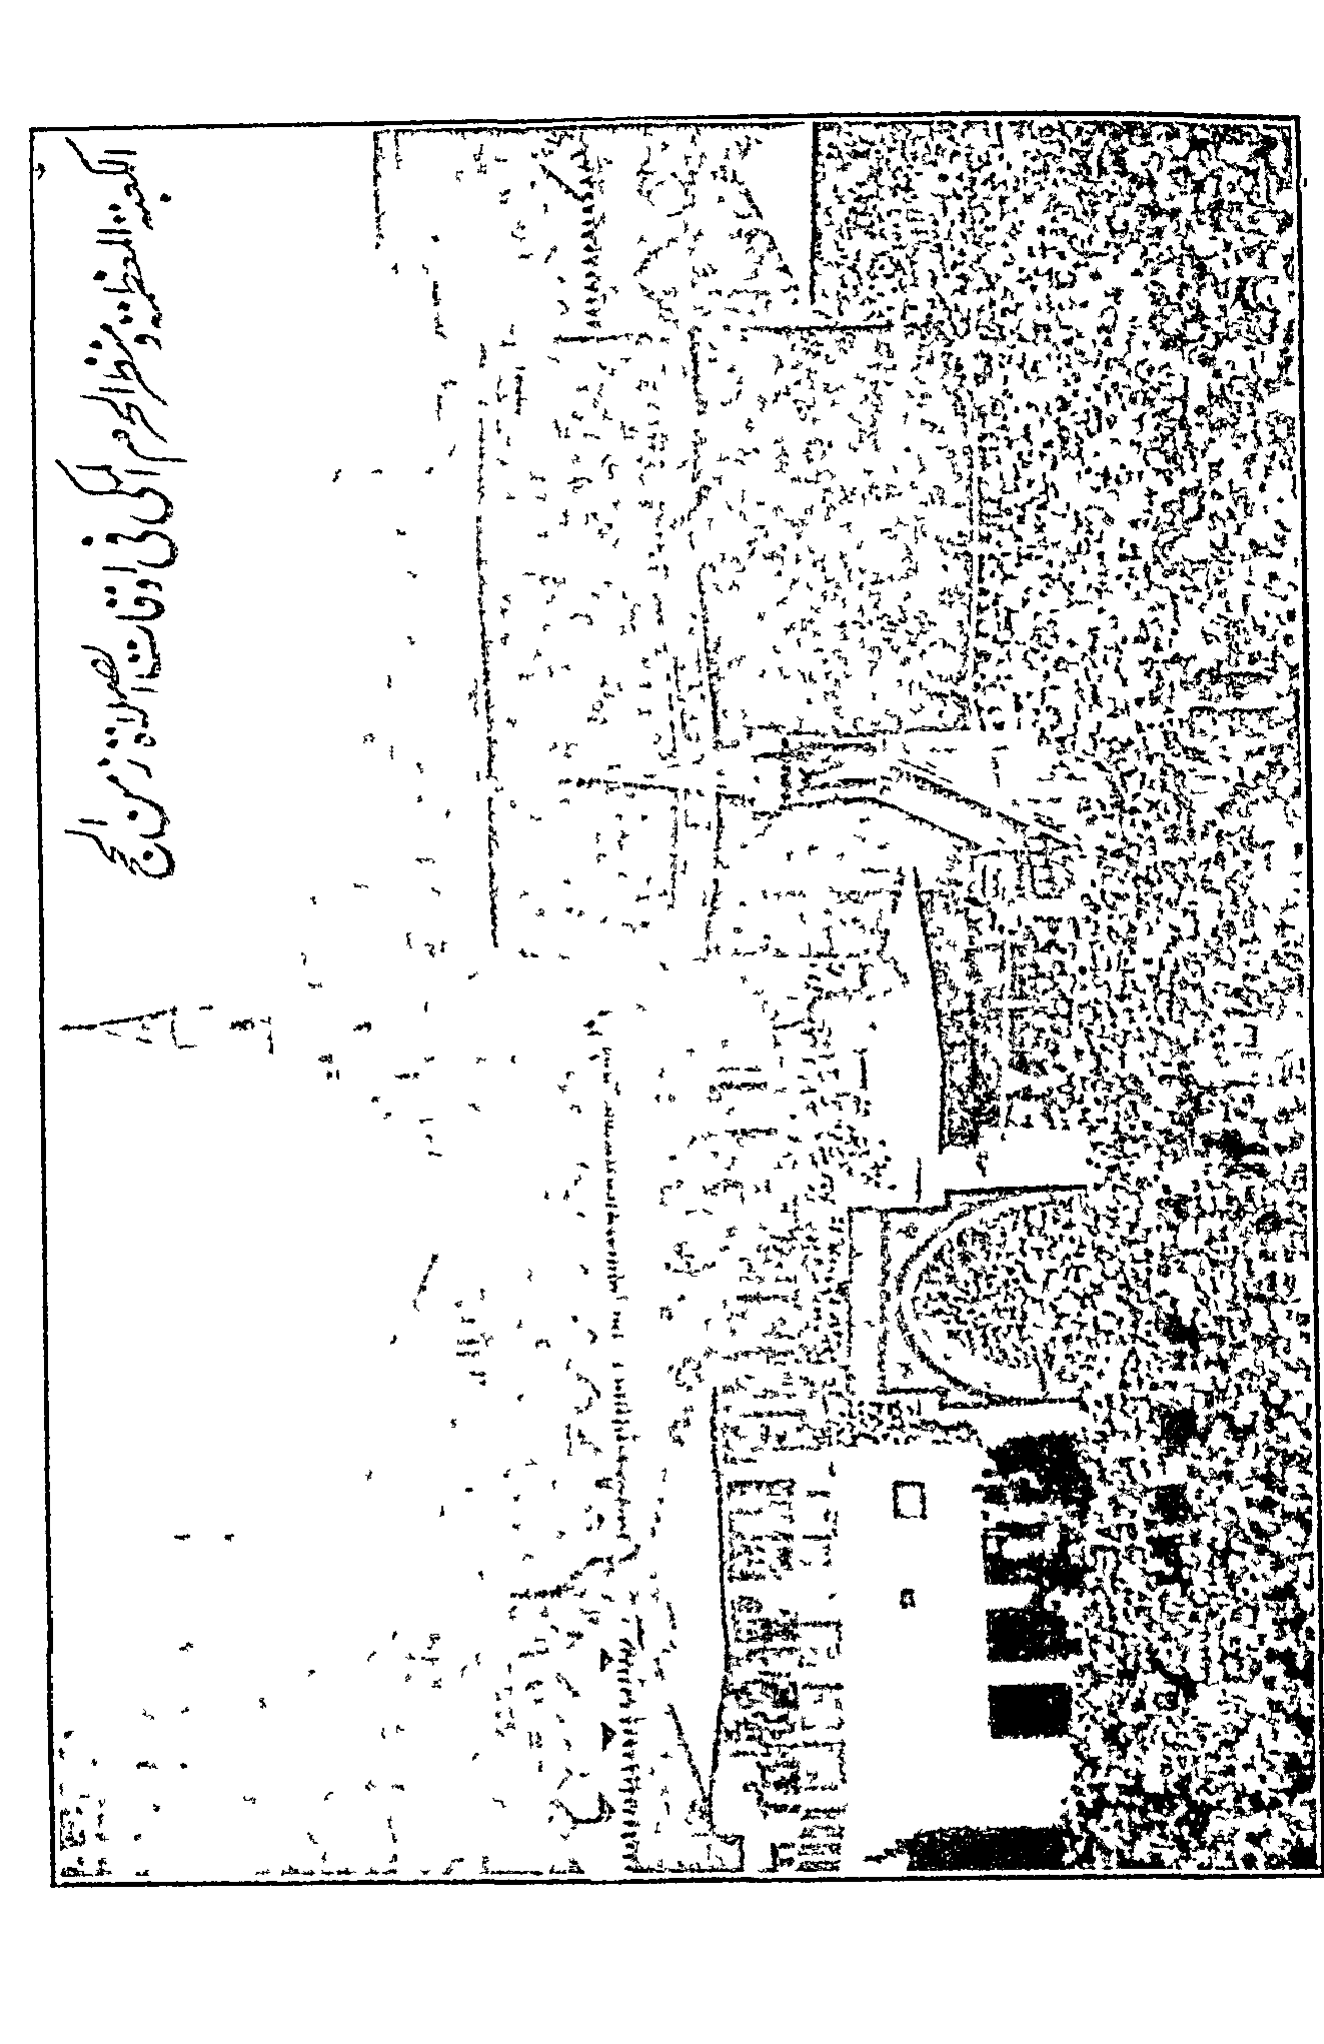 الكعبة المعظمة ومنظر الحرم المكي في اوقات الصلاة زمن الحج